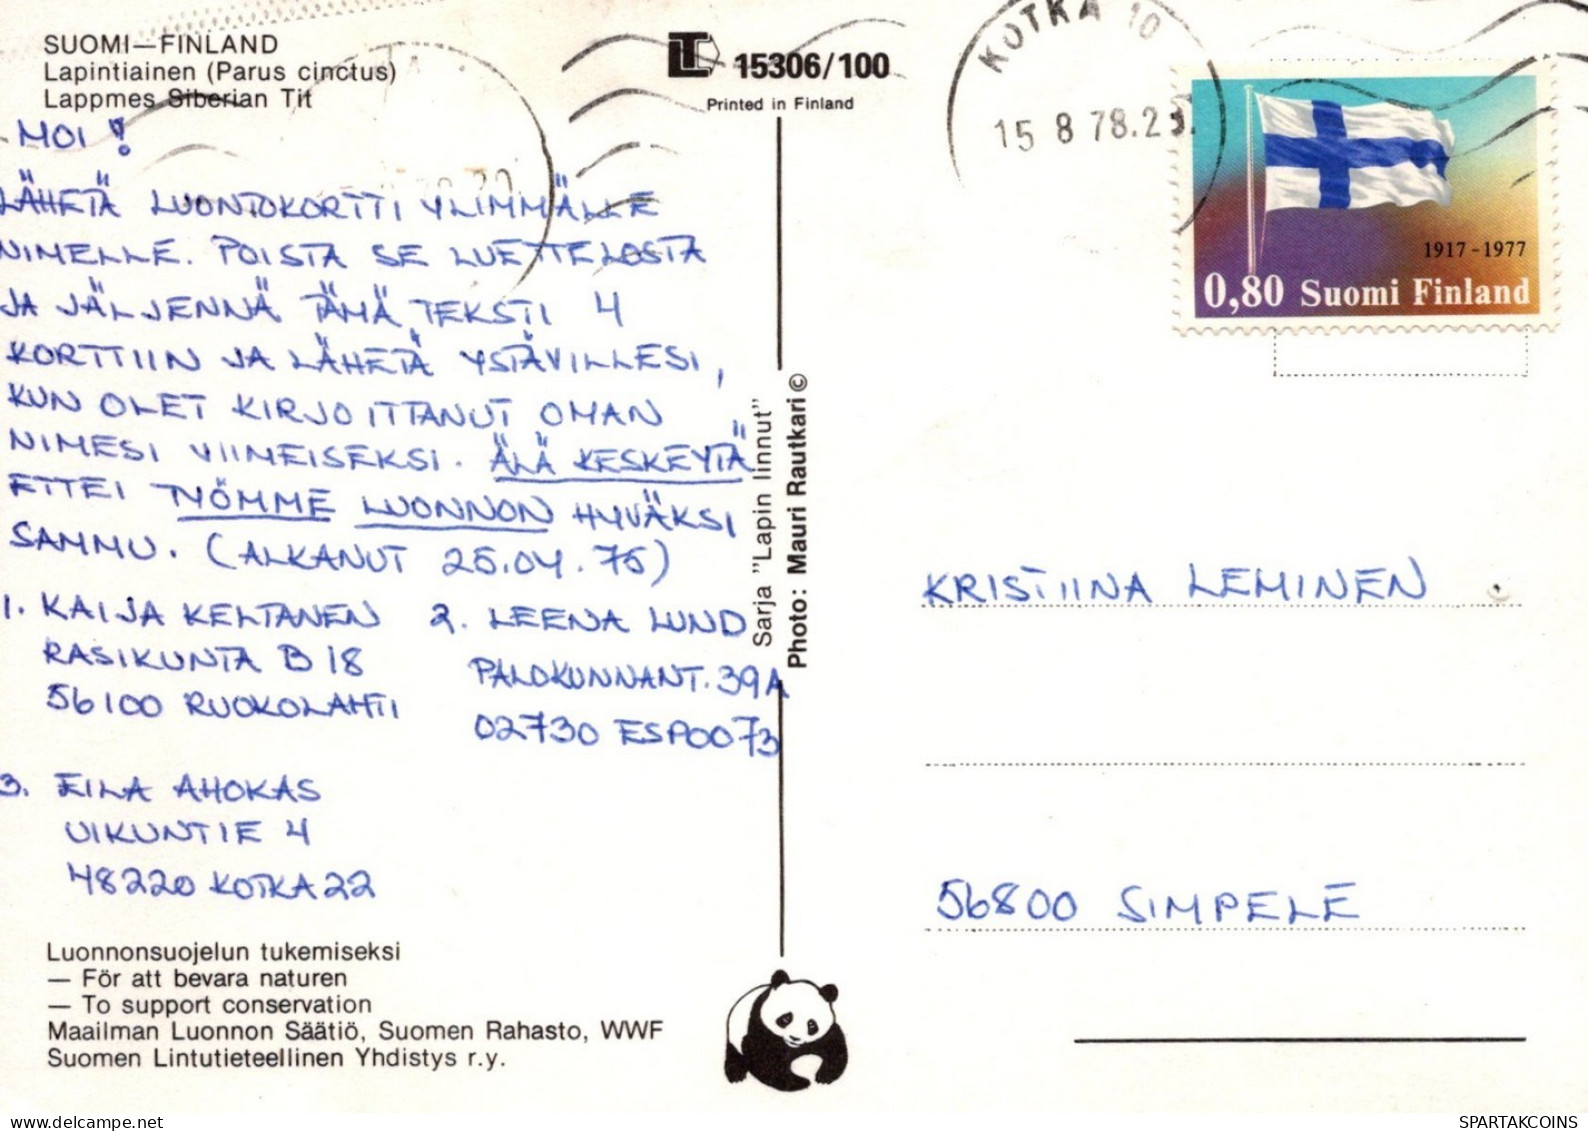 SUOMI—FINLAND
Lapintiainen (Parus cinctus)
Lappmes Siberian Tit
15306/100
Printed in Finland
KOTKA 10
15 8 78.2
1917-1977
0,80 Suomi Finland
MOI!
LÄHETÄ LUONTOKORTTI YLIMMÄLLE
NIMELLE. POISTA SE LUETTELOSTA
JA JÄLJENNÄ TÄMÄ TEKSTI 4
KORTTIIN JA LÄHETÄ YSTÄVILLESI,
KUN OLET KIRJOITTANUT OMAN
NIMESI VIIMEISEKSI. ÄLÄ KESKEYTÄ
ETTEI TYÖMME LUONNON HYVÄKSI
SAMMU. (ALKANUT 25.04.75)
1. KAIJA KELTANEN
RASIKUNTA B 18
56100 RUOKOLAHTI
2. LEENA LUND
PALOKUNNANT. 39A
02730 ESPOO 73
3. EILA AHOKAS
UIKUNTIE 4
48220 KOTKA 22
Sarja "Lapin linnut"
Photo: Mauri Rautkari ©
KRISTIINA LEMINEN
56800 SIMPELE
Luonnonsuojelun tukemiseksi
— För att bevara naturen
— To support conservation
Maailman Luonnon Säätiö, Suomen Rahasto, WWF
Suomen Lintutieteellinen Yhdistys r.y.
delcampe.net
SPARTAKCOINS